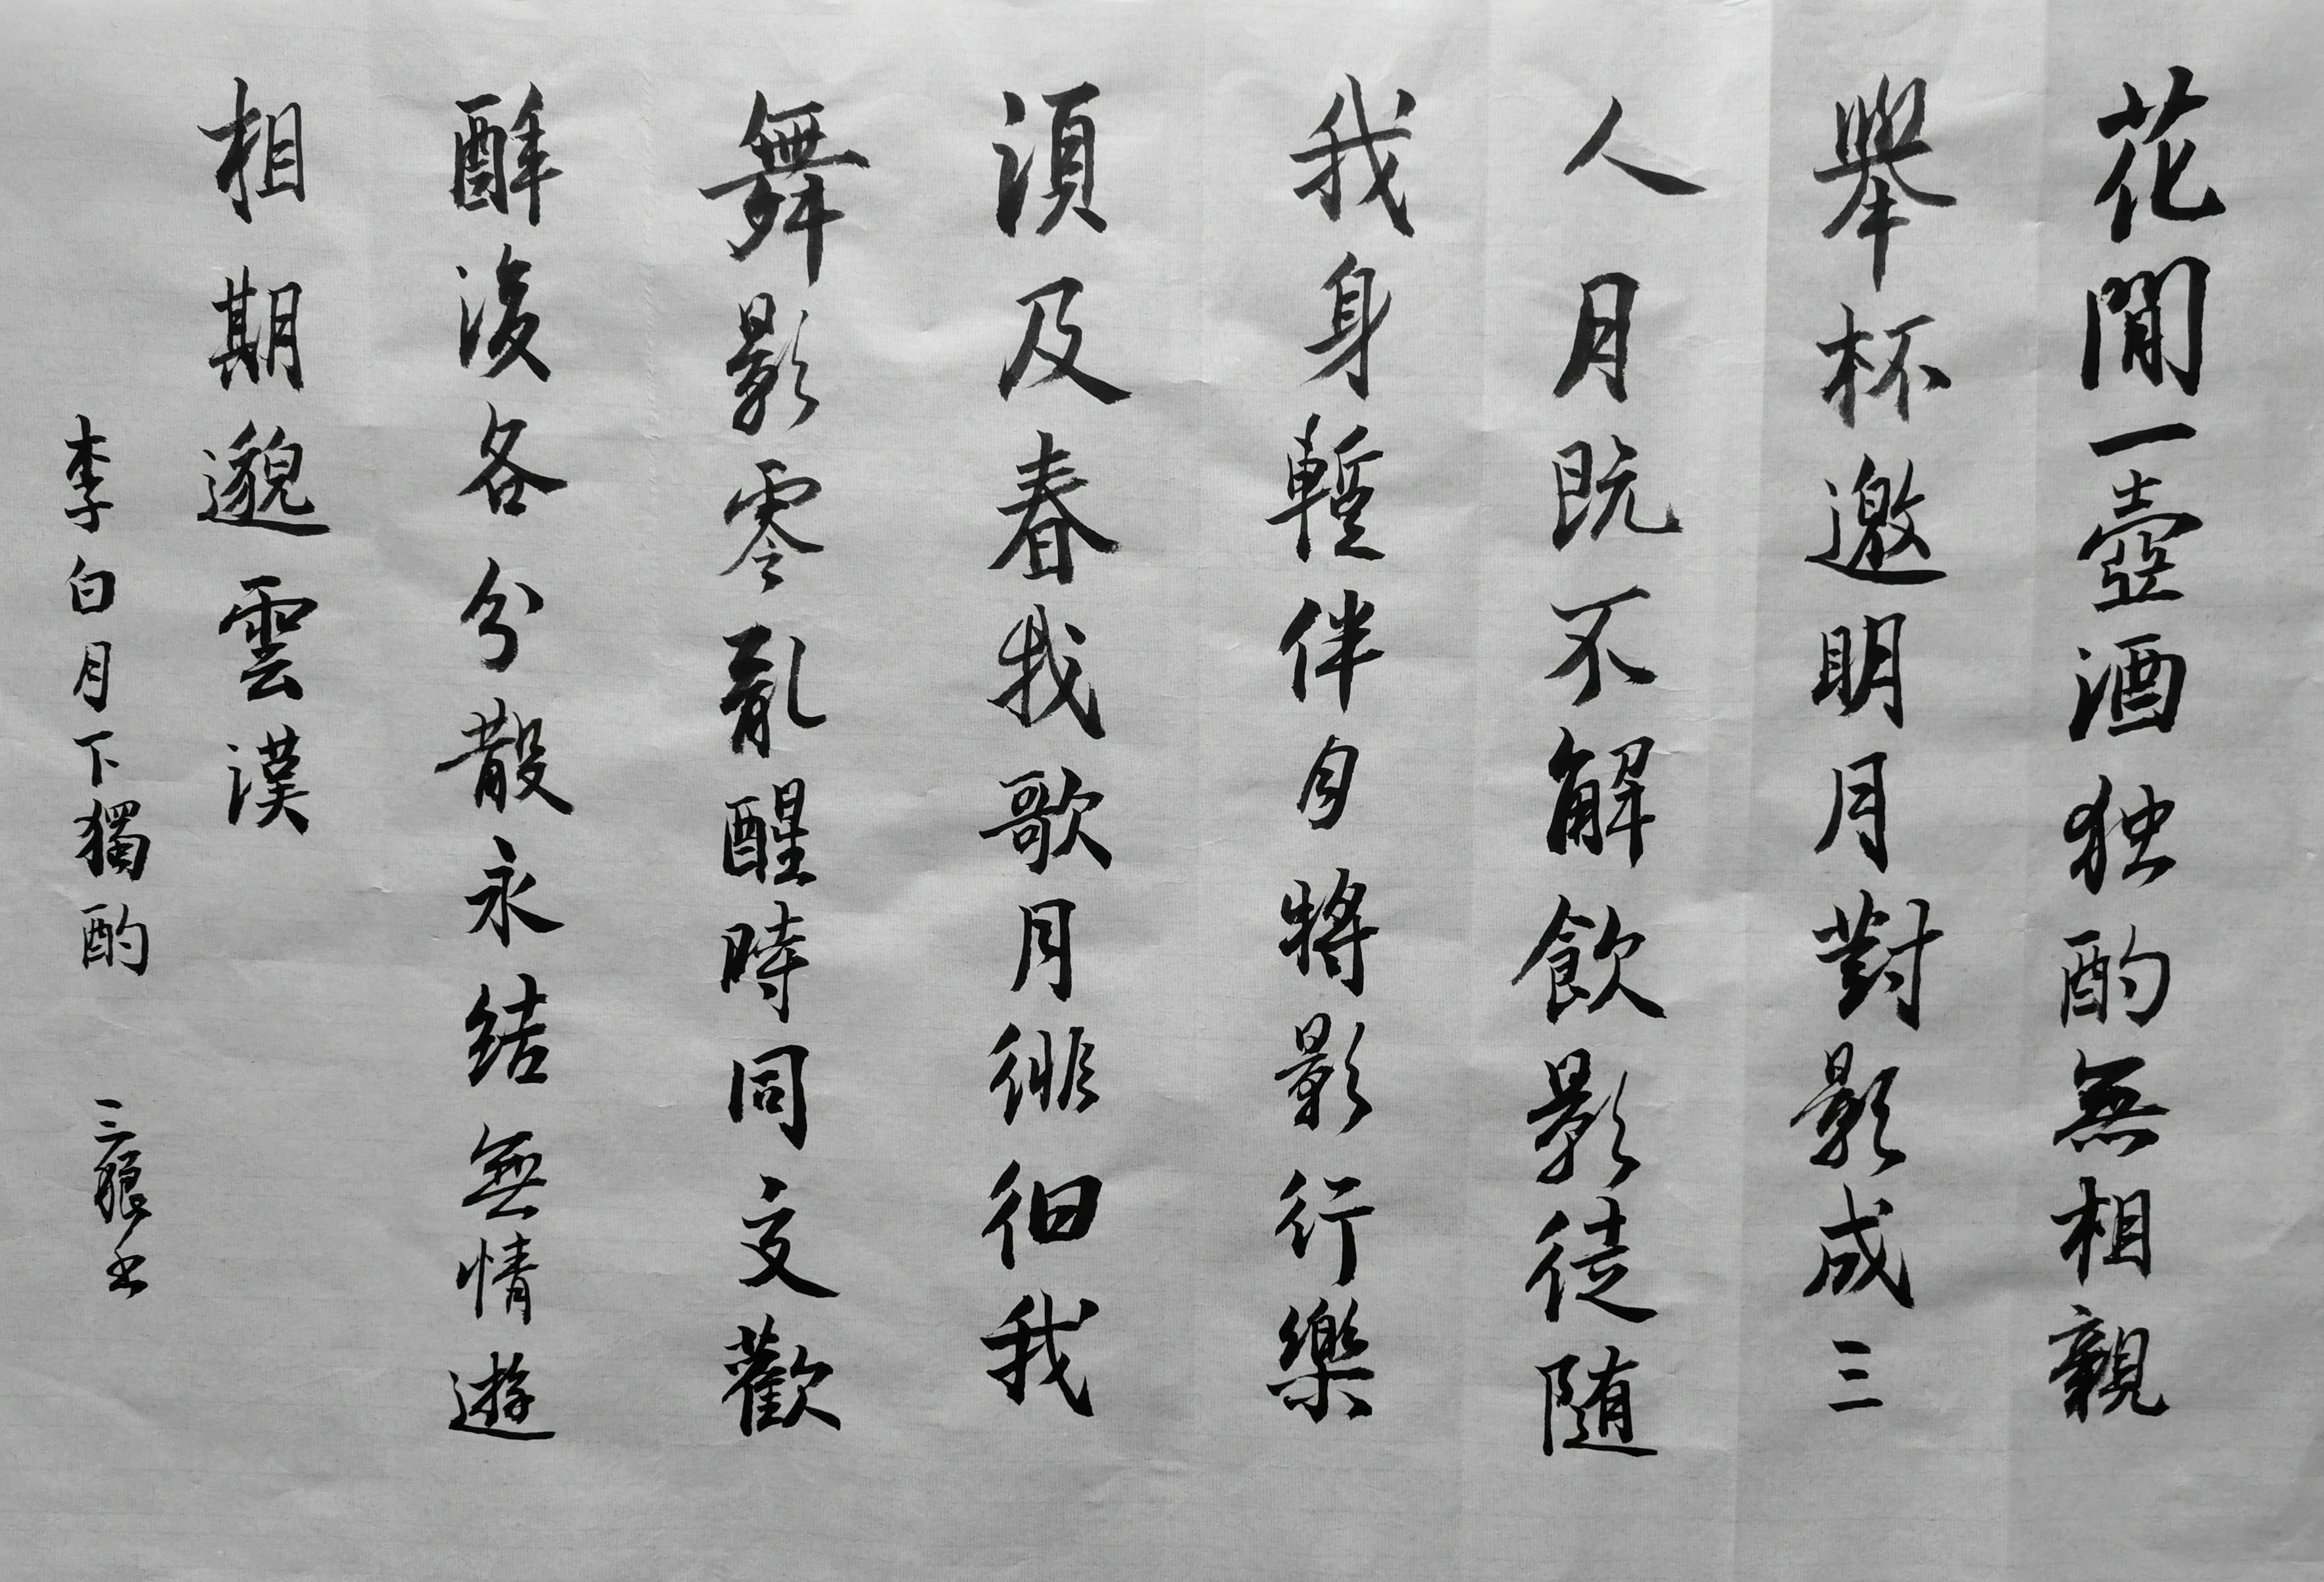 花間一壺酒独酌無相親
舉杯邀明月對影成三
人月既不解飲影徒随
我身暫伴月將影行樂
須及春我歌月徘徊我
舞影零亂醒時同交歡
醉後各分散永結無情遊
相期邈雲漢
李白月下獨酌 三 書